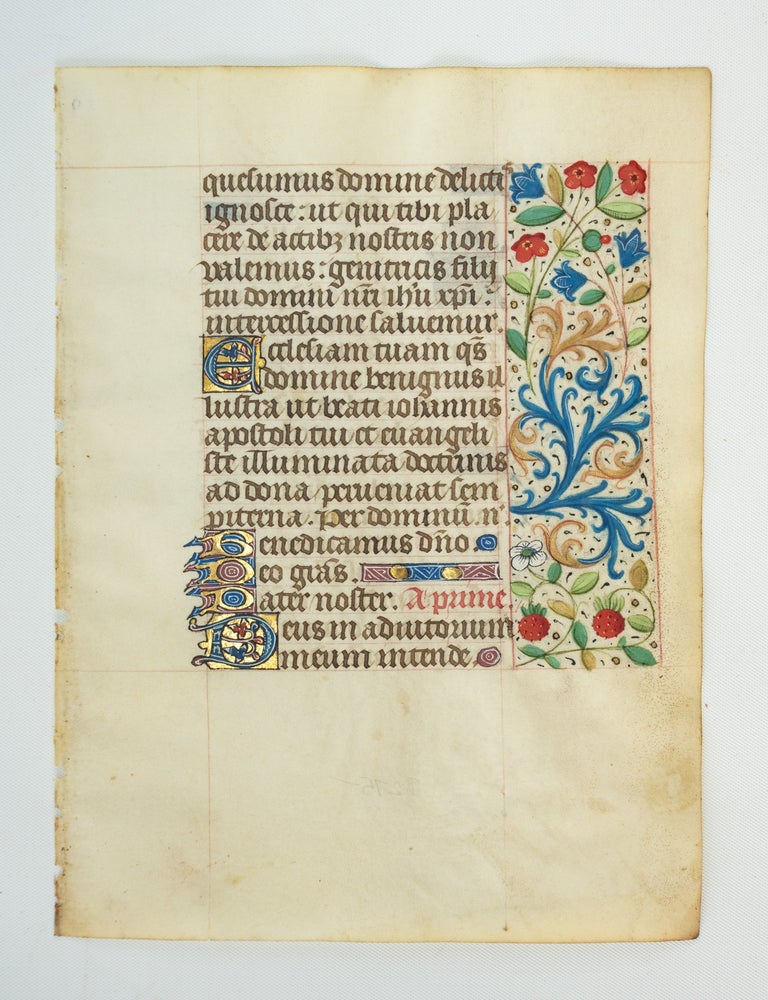 quesumus domine delictis
ignosce : ut qui tibi pla
cere de actibꝫ nostris non
valemus : genitricis filij
tui domini nr̄i ih'u xp̄i :
intercessione saluemur.
Ecclesiam tuam qs̄
domine benignus il
lustra ut beati iohannis
apostoli tui et euangeli
ste illuminata doctrinis
ad dona perueniat sem
piterna. Per dominū. n̄
Benedicamus dn̄o
Deo grās.
Pater noster. A prime.
Deus in adiutorium
meum intende